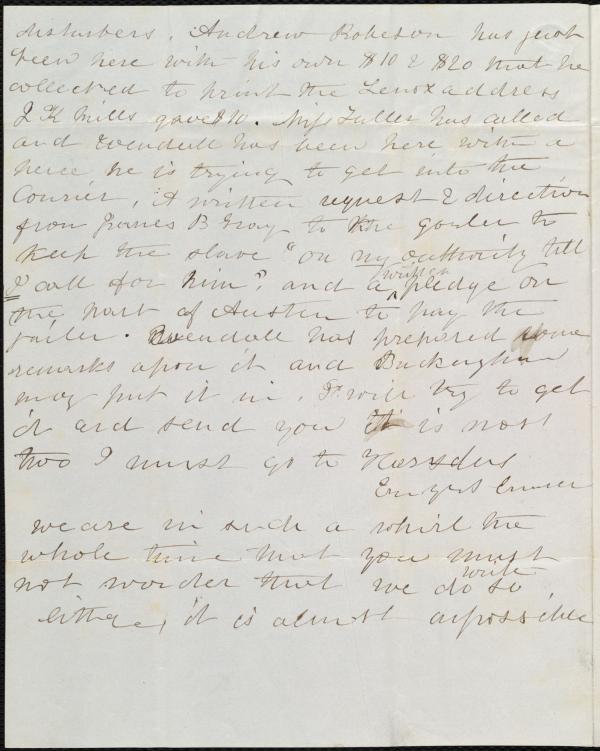 disturbers. Andrew Robeson has just
been here with his own $10 & $20 that he
collected to print the Lenox address
J K Mills gave $10. Miss Fuller has called
and Wendell has been here with a
piece he is trying to get into the
Courier, A written request & direction
from James B Gray to the gaoler to
keep the slave "on my authority till
I call for him", and a written pledge on
the part of Austin to pay the
jailer. Wendell has prepared some
remarks upon it and Buckingham
may put it in. I will try to get
it and send you It is most
two I must go to
we are in such a whirl the
whole time that you must
not wonder that we do write so
little, it is almost impossible